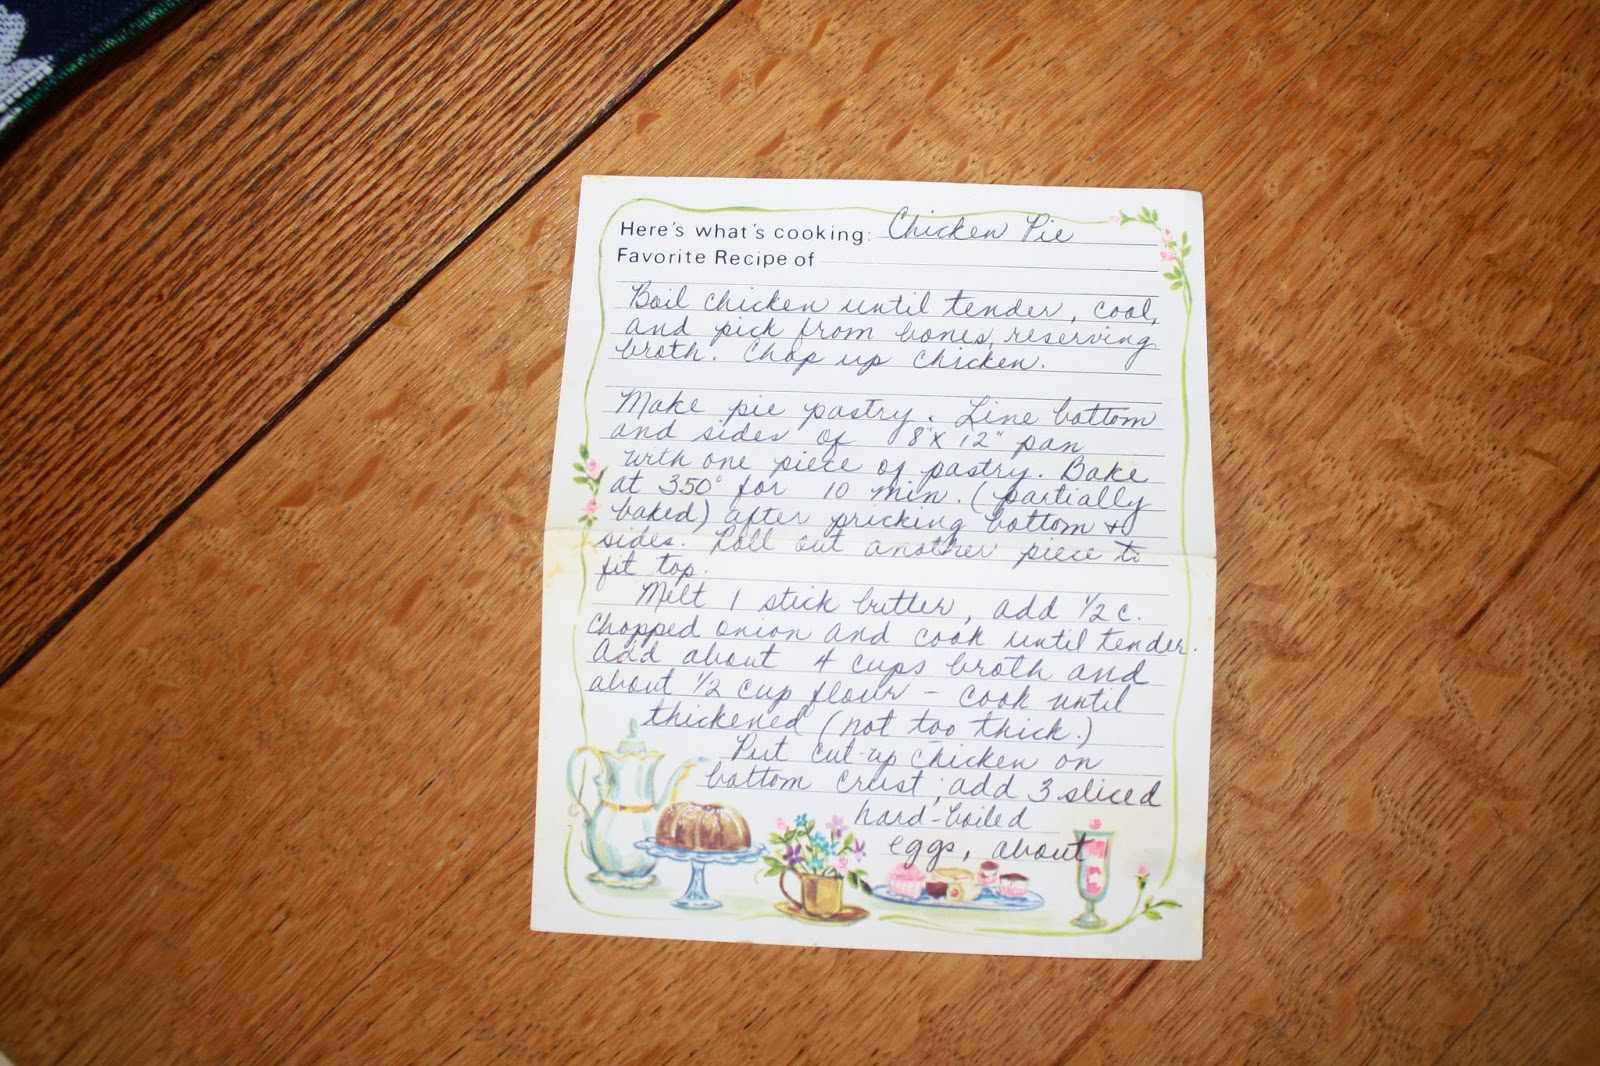 Here's what's cooking: Chicken Pie
Favorite Recipe of
Boil chicken until tender, cool,
and pick from bones, reserving
broth. Chop up chicken.
Make pie pastry. Line bottom
and sides of 8"x 12" pan
with one piece of pastry. Bake
at 350° for 10 min. (partially
baked) after pricking bottom &
sides. Roll out another piece to
fit top.
Melt 1 stick butter, add 1/2 c.
chopped onion and cook until tender.
Add about 4 cups broth and
about 1/2 cup flour - cook until
thickened (not too thick.)
Put cut-up chicken on
bottom crust; add 3 sliced
hard-boiled
eggs, about